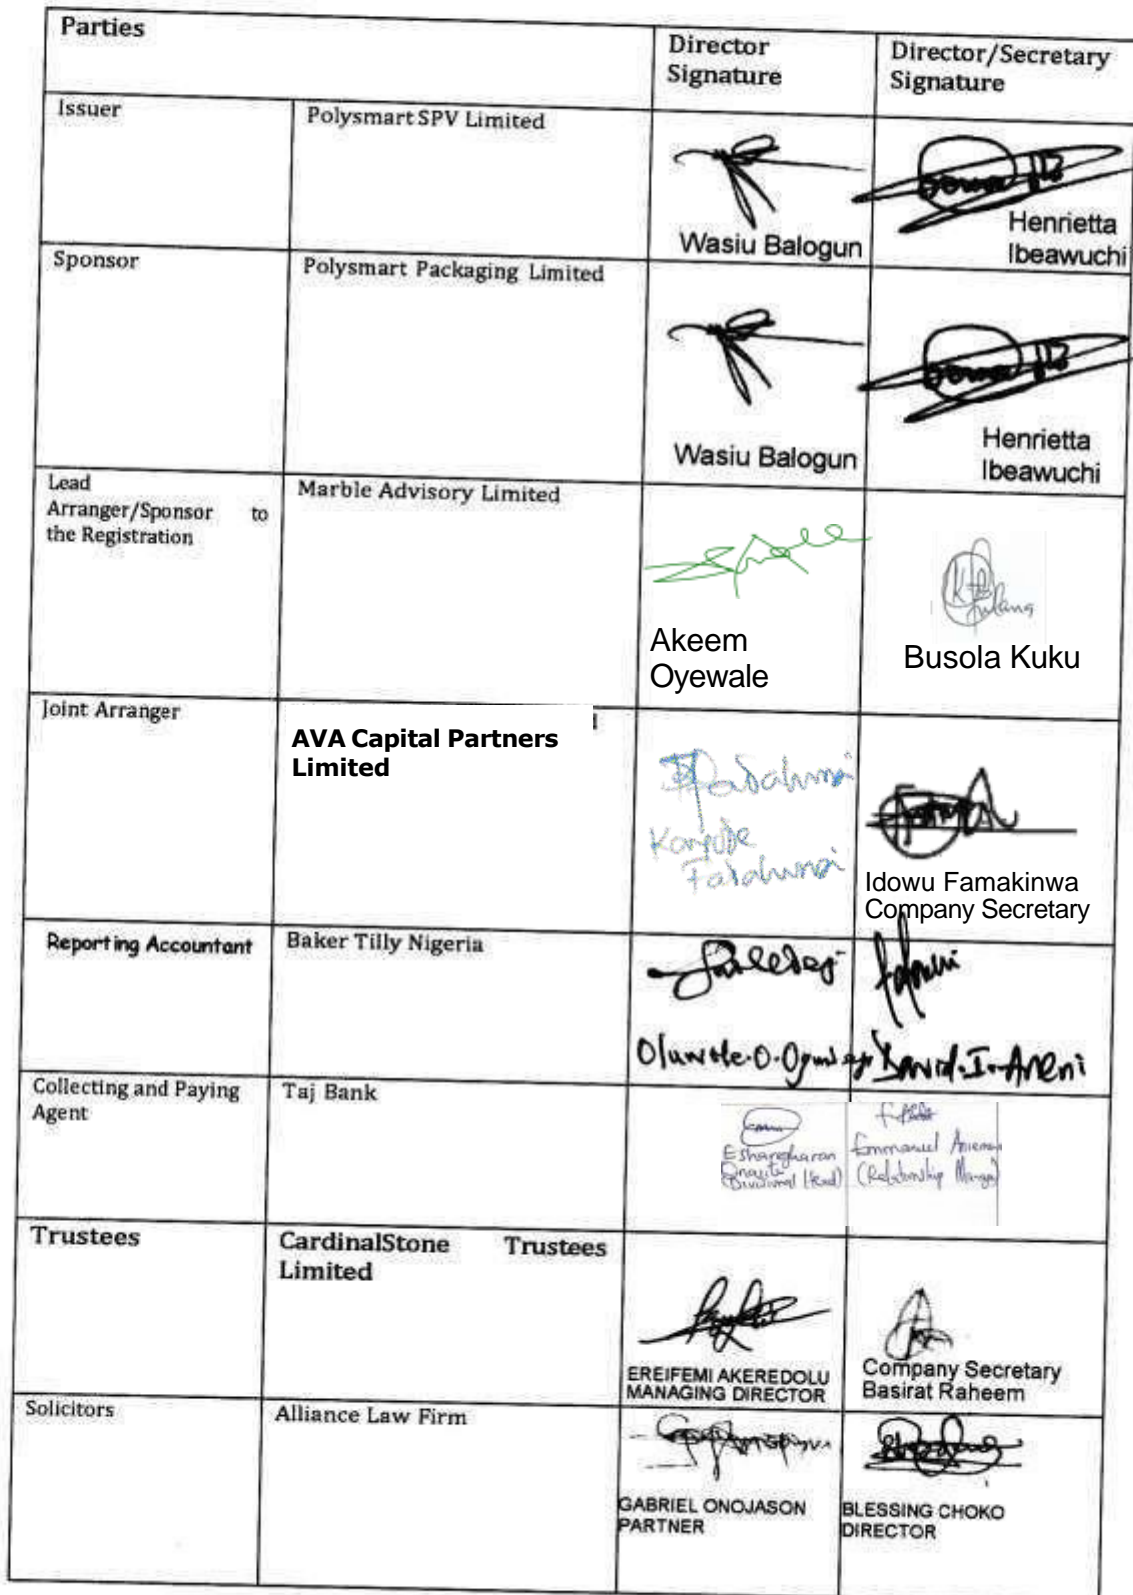 Parties
Director
Signature
Director/Secretary
Signature
Issuer
Polysmart SPV Limited
Wasiu Balogun
Henrietta
Ibeawuchi
Sponsor
Polysmart Packaging Limited
Wasiu Balogun
Henrietta
Ibeawuchi
Lead
Arranger/Sponsor to
the Registration
Marble Advisory Limited
Akeem
Oyewale
Busola Kuku
Joint Arranger
AVA Capital Partners
Limited
Kayode
Fadahunsi
Idowu Famakinwa
Company Secretary
Reporting Accountant
Baker Tilly Nigeria
Oluwole.O.
David.I.Aneni
Collecting and Paying
Agent
Taj Bank
Divisional Head)
Emmanuel
(Relationship Manager)
Trustees
CardinalStone Trustees
Limited
EREIFEMI AKEREDOLU
MANAGING DIRECTOR
Company Secretary
Basirat Raheem
Solicitors
Alliance Law Firm
GABRIEL ONOJASON
PARTNER
BLESSING CHOKO
DIRECTOR